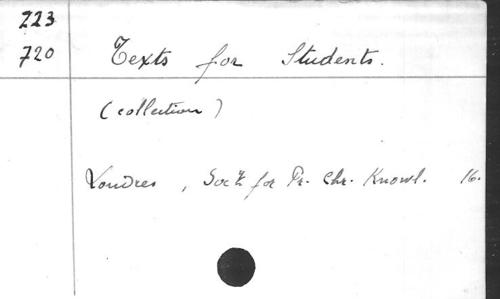 223
720 Texts for Students.
(collection)
Londres, Socty for Pr. Chr. Knowl. 16.